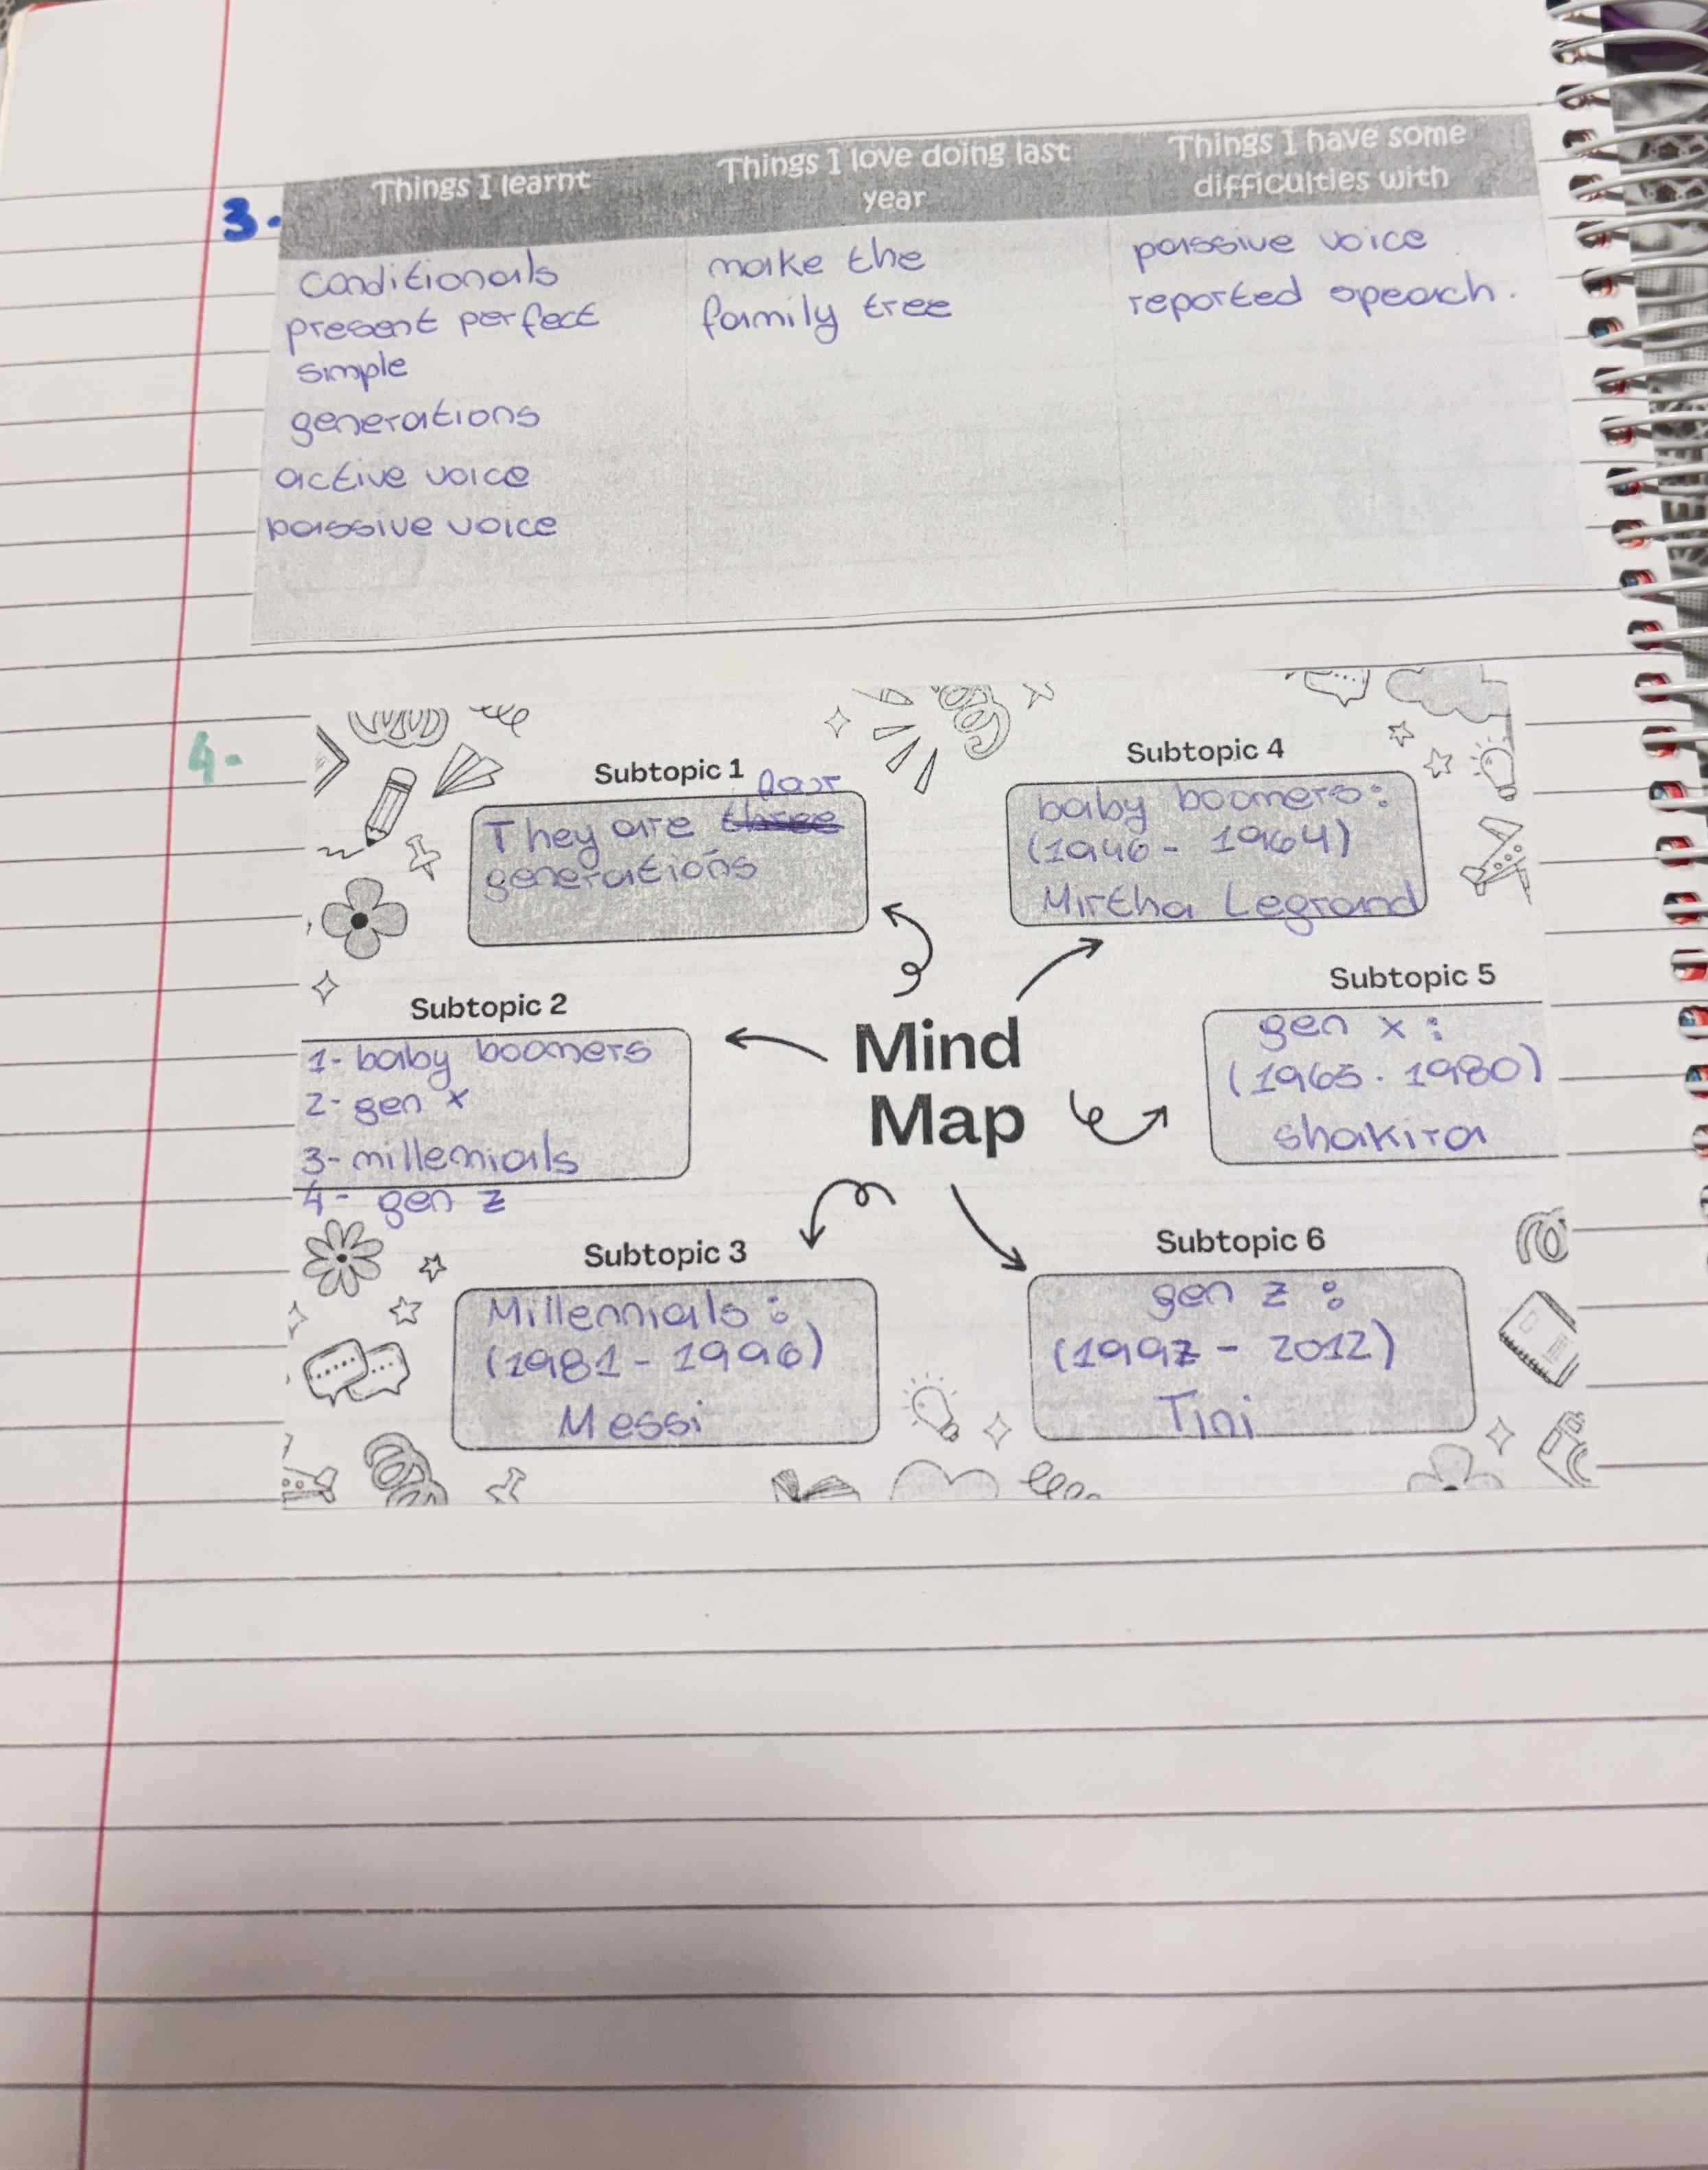 3.
Things I learnt
conditionals
present perfect
simple
generations
active voice
passive voice
Things I love doing last
year
make the
family tree
Things I have some
difficulties with
passive voice
reported speach.
4-
Mind
Map
Subtopic 1
four
They are three
generations
Subtopic 2
1- baby boomers
2- gen x
3- millennials
4- gen z
Subtopic 3
Millennials:
(1981 - 1996)
Messi
Subtopic 4
baby boomers:
(1946 - 1964)
Mirtha Legrand
Subtopic 5
gen x:
(1965. 1980)
shakira
Subtopic 6
gen z:
(1997 - 2012)
Tini